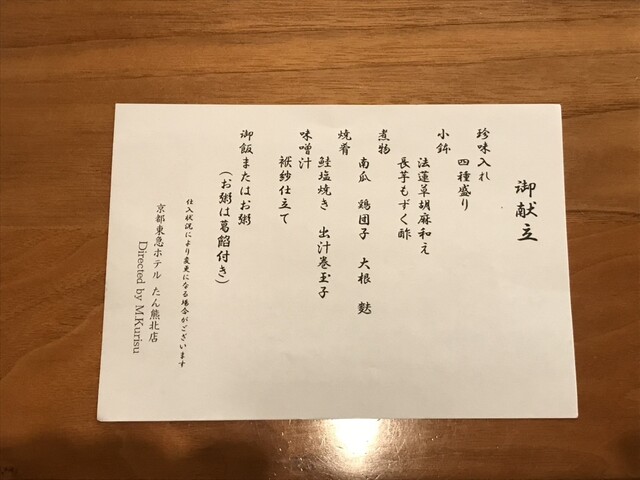 御献立
珍味入れ
四種盛り
小鉢
法蓮草胡麻和え
長芋もずく酢
煮物
南瓜 鶏団子 大根 麩
焼肴
鮭塩焼き 出汁巻玉子
味噌汁
袱紗仕立て
御飯またはお粥
(お粥は葛餡付き)
仕入状況により変更になる場合がございます
京都東急ホテル たん熊北店
Directed by M.Kurisu